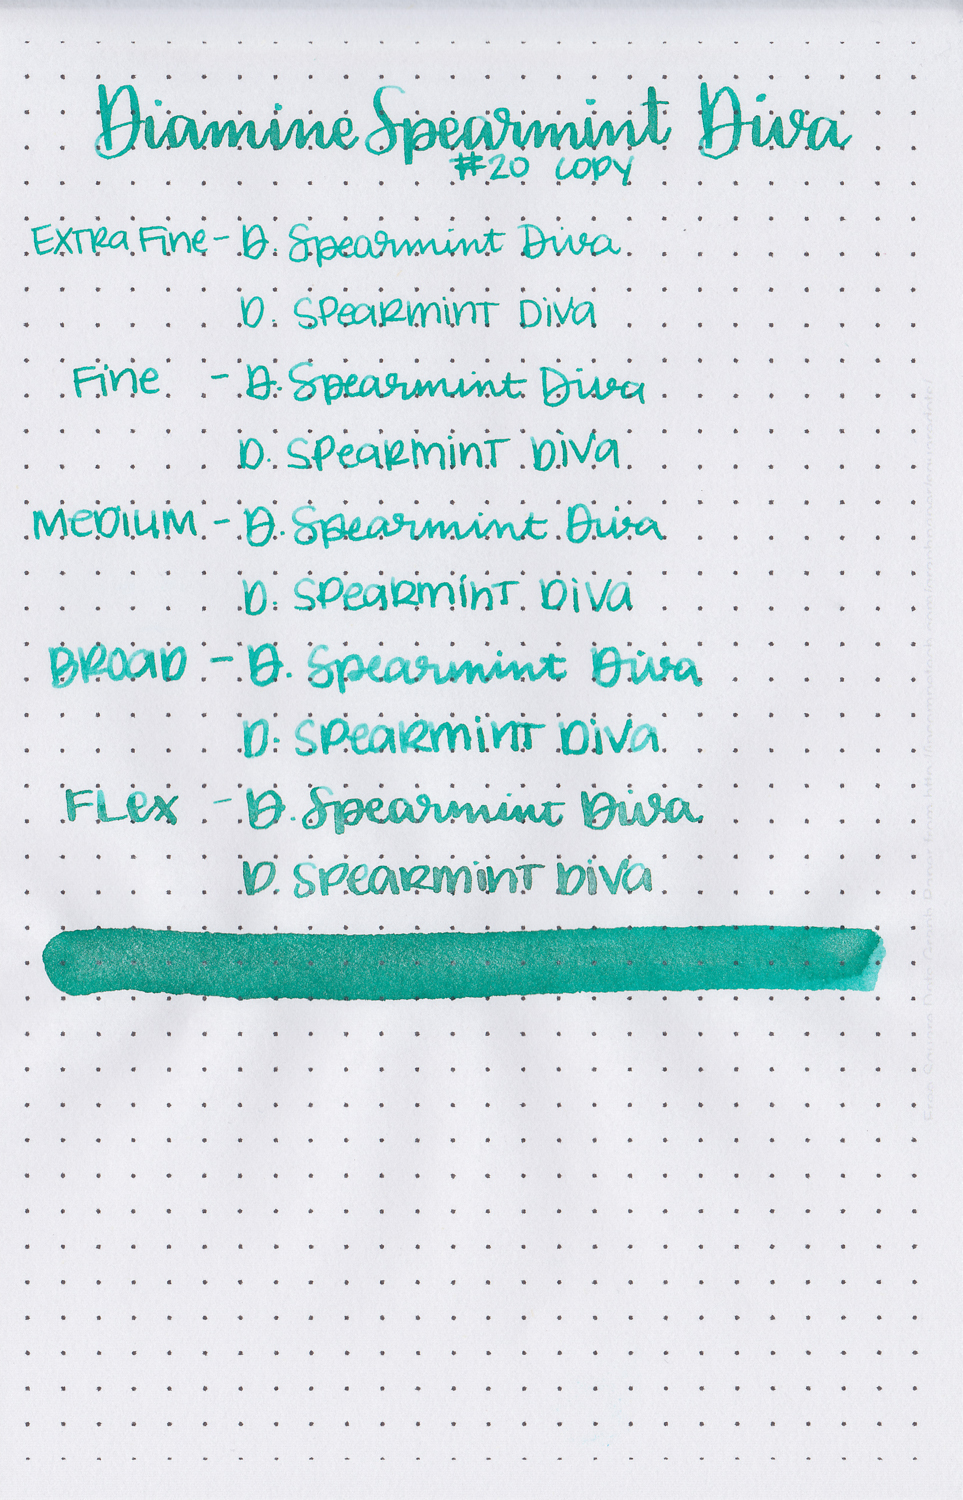 Diamine Spearmint Diva
#20 copy
Extra Fine - D. Spearmint Diva
D. Spearmint Diva
Fine - D. Spearmint Diva
D. Spearmint Diva
Medium - D. Spearmint Diva
D. Spearmint Diva
Broad - D. Spearmint Diva
D. Spearmint Diva
Flex - D. Spearmint Diva
D. Spearmint Diva